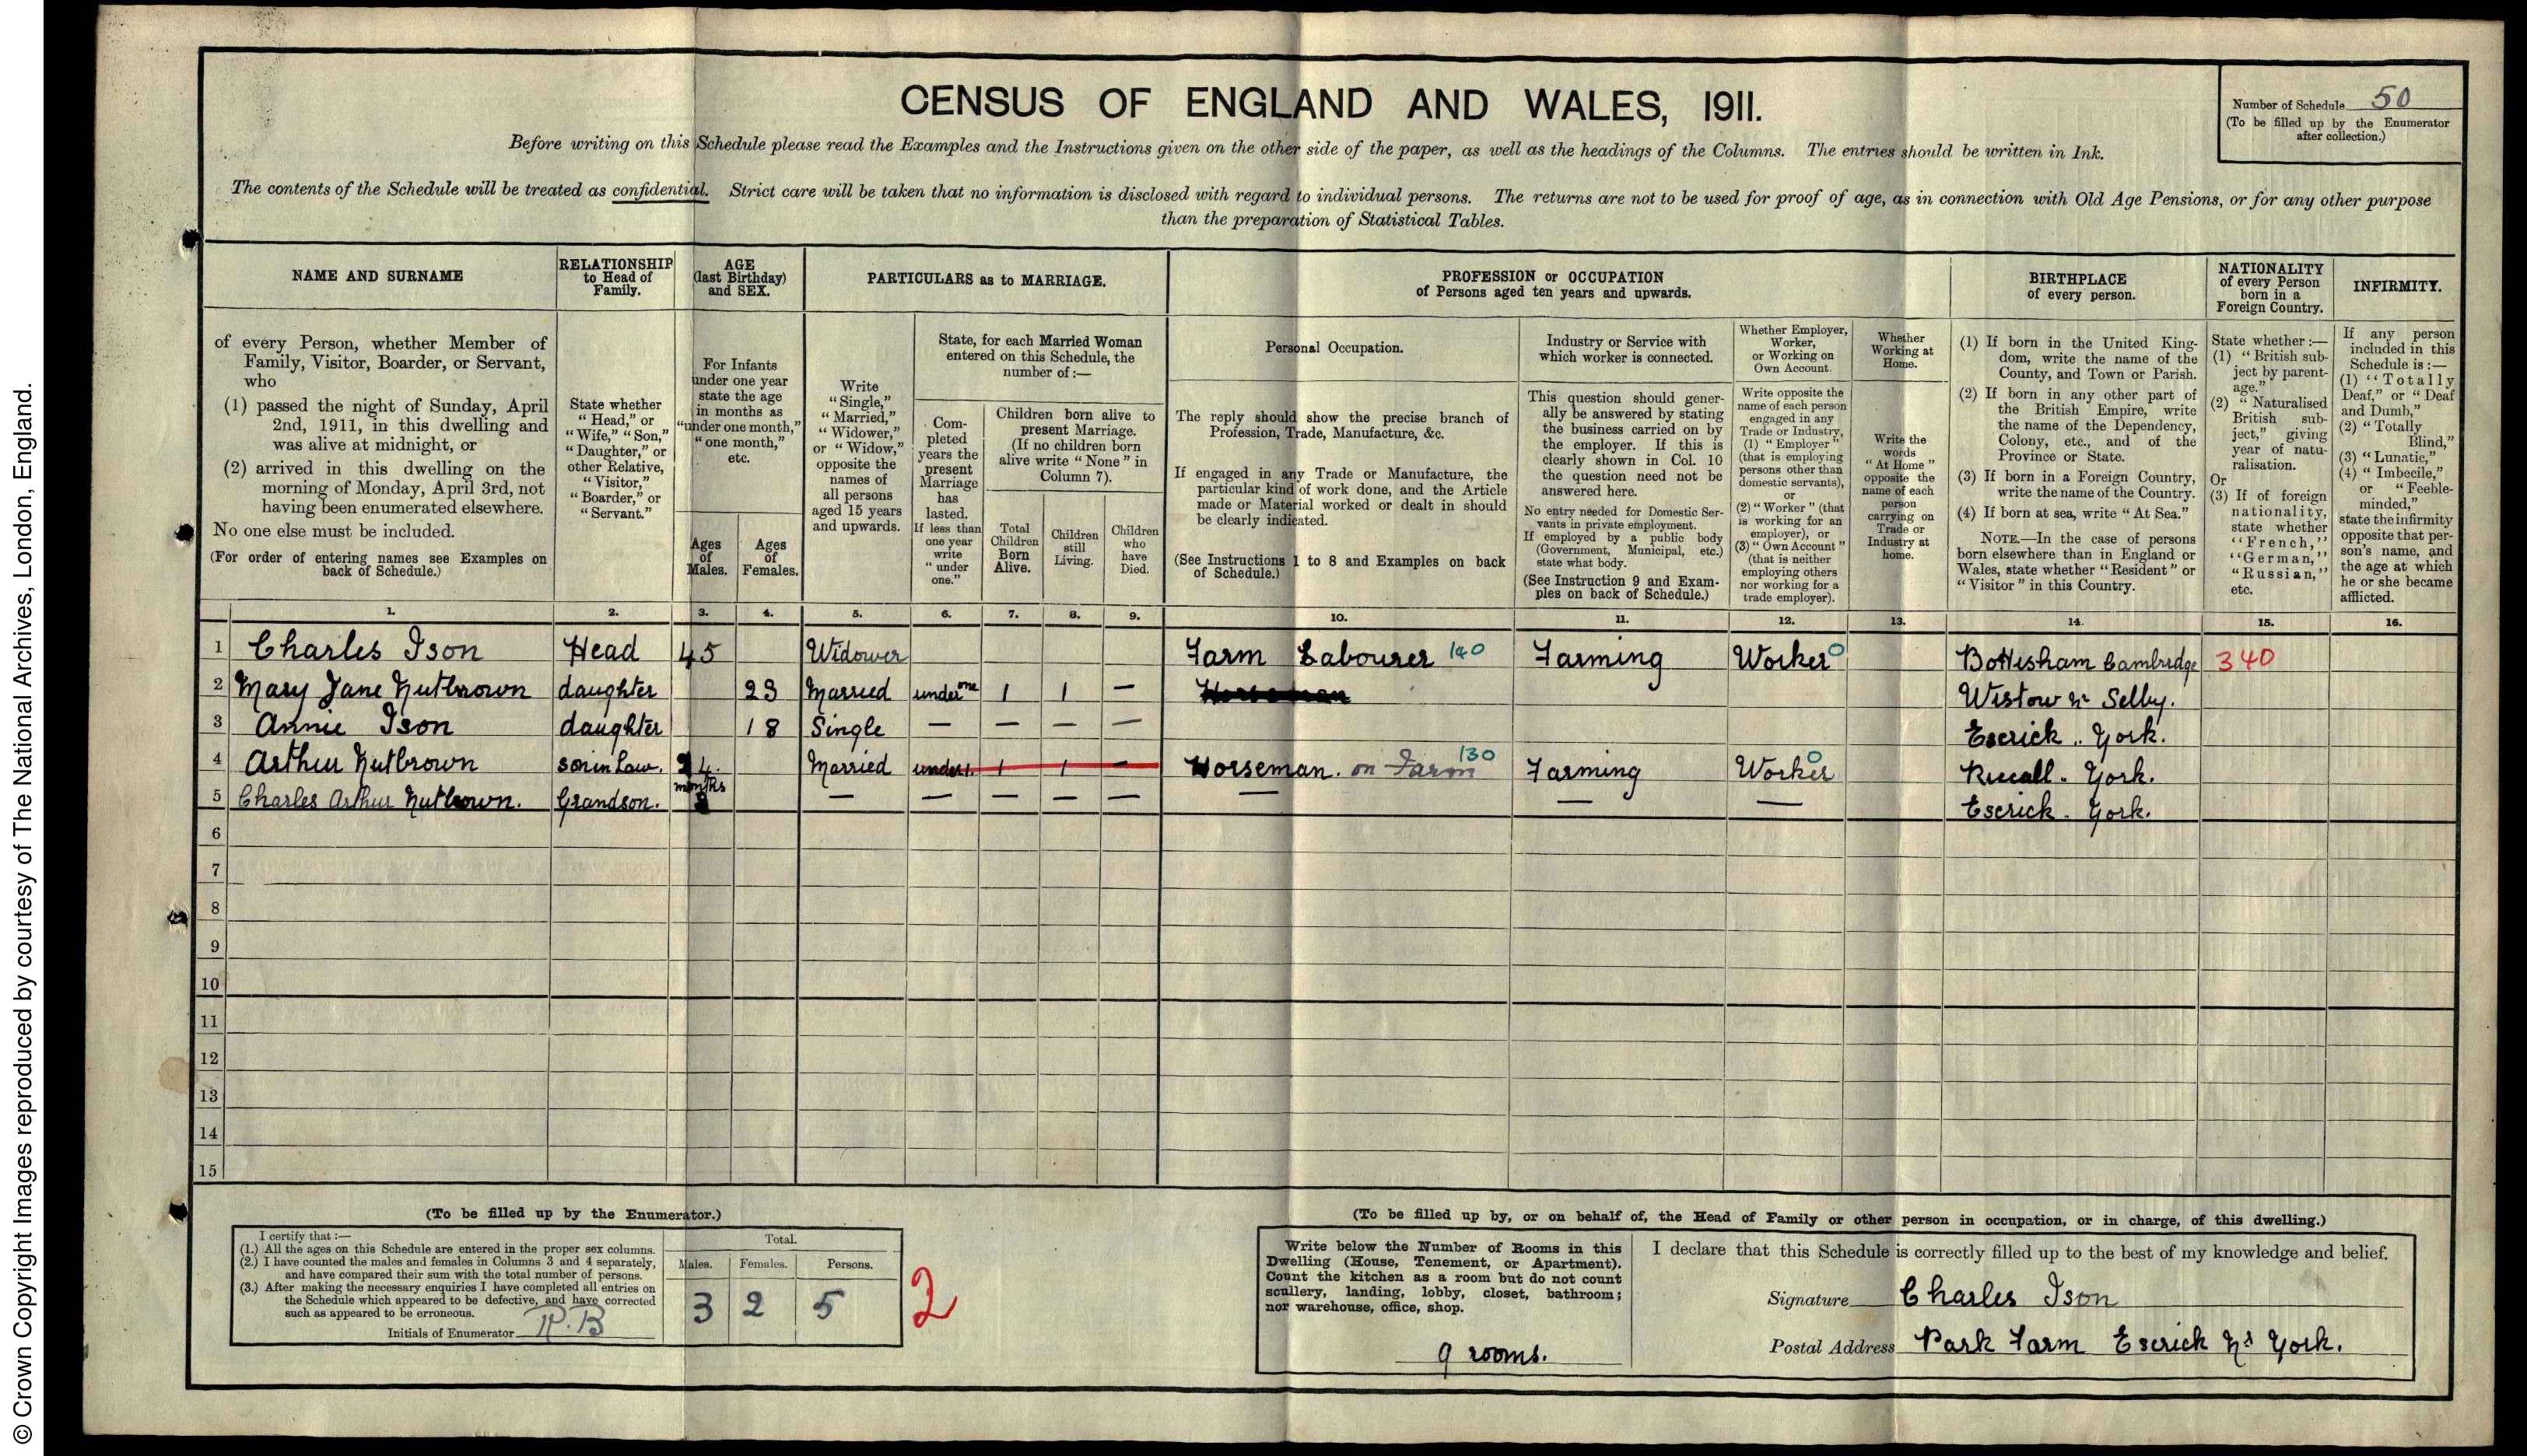 © Crown Copyright Images reproduced by courtesy of The National Archives, London, England.
CENSUS OF ENGLAND AND WALES, 1911.
Number of Schedule 50
(To be filled up by the Enumerator
after collection.)
Before writing on this Schedule please read the Examples and the Instructions given on the other side of the paper, as well as the headings of the Columns. The entries should be written in Ink.
The contents of the Schedule will be treated as confidential. Strict care will be taken that no information is disclosed with regard to individual persons. The returns are not to be used for proof of age, as in connection with Old Age Pensions, or for any other purpose
than the preparation of Statistical Tables.
NAME AND SURNAME
of every Person, whether Member of
Family, Visitor, Boarder, or Servant,
who
(1) passed the night of Sunday, April
2nd, 1911, in this dwelling and
was alive at midnight, or
(2) arrived in this dwelling on the
morning of Monday, April 3rd, not
having been enumerated elsewhere.
No one else must be included.
(For order of entering names see Examples on
back of Schedule.)
RELATIONSHIP
to Head of
Family.
State whether
"Head," or
"Wife," "Son,"
"Daughter," or
other Relative,
"Visitor,"
"Boarder," or
"Servant."
AGE
(last Birthday)
and SEX.
For Infants
under one year
state the age
in months as
"under one month,"
"one month,"
etc.
Ages
of
Males.
Ages
of
Females.
PARTICULARS as to MARRIAGE.
Write
"Single,"
"Married,"
"Widower,"
or "Widow,"
opposite the
names of
all persons
aged 15 years
and upwards.
State, for each Married Woman
entered on this Schedule, the
number of :—
Com-
pleted
years the
present
Marriage
has
lasted.
If less than
one year
write
"under
one."
Children born alive to
present Marriage.
(If no children born
alive write "None" in
Column 7).
Total
Children
Born
Alive.
Children
still
Living.
Children
who
have
Died.
PROFESSION or OCCUPATION
of Persons aged ten years and upwards.
Personal Occupation.
The reply should show the precise branch of
Profession, Trade, Manufacture, &c.
If engaged in any Trade or Manufacture, the
particular kind of work done, and the Article
made or Material worked or dealt in should
be clearly indicated.
(See Instructions 1 to 8 and Examples on back
of Schedule.)
Industry or Service with
which worker is connected.
This question should gener-
ally be answered by stating
the business carried on by
the employer. If this is
clearly shown in Col. 10
the question need not be
answered here.
No entry needed for Domestic Ser-
vants in private employment.
If employed by a public body
(Government, Municipal, etc.)
state what body.
(See Instruction 9 and Exam-
ples on back of Schedule.)
Whether Employer,
Worker,
or Working on
Own Account.
Write opposite the
name of each person
engaged in any
Trade or Industry,
(1) "Employer"
(that is employing
persons other than
domestic servants),
or
(2) "Worker" (that
is working for an
employer), or
(3) "Own Account"
(that is neither
employing others
nor working for a
trade employer).
Whether
Working at
Home.
Write the
words
"At Home"
opposite the
name of each
person
carrying on
Trade or
Industry at
home.
BIRTHPLACE
of every person.
(1) If born in the United King-
dom, write the name of the
County, and Town or Parish.
(2) If born in any other part of
the British Empire, write
the name of the Dependency,
Colony, etc., and of the
Province or State.
(3) If born in a Foreign Country,
write the name of the Country.
(4) If born at sea, write "At Sea."
NOTE.—In the case of persons
born elsewhere than in England or
Wales, state whether "Resident" or
"Visitor" in this Country.
NATIONALITY
of every Person
born in a
Foreign Country.
State whether :—
(1) "British sub-
ject by parent-
age."
(2) "Naturalised
British sub-
ject," giving
year of natu-
ralisation.
Or
(3) If of foreign
nationality,
state whether
"French,"
"German,"
"Russian,"
etc.
INFIRMITY.
If any person
included in this
Schedule is :—
(1) "Totally
Deaf," or "Deaf
and Dumb,"
(2) "Totally
Blind,"
(3) "Lunatic,"
(4) "Imbecile,"
or "Feeble-
minded,"
state the infirmity
opposite that per-
son's name, and
the age at which
he or she became
afflicted.
1. 2. 3. 4. 5. 6. 7. 8. 9. 10. 11. 12. 13. 14. 15. 16.
1 Charles Ison Head 45 Widower Farm Labourer 140 Farming Worker 0 Bottisham Cambridge 340
2 Mary Jane Nutbrown daughter 23 Married under one 1 1 — Wistow Nr Selby.
3 Annie Ison daughter 18 Single — — — — Escrick. York.
4 Arthur Nutbrown son in Law. 24. Married under 1. 1 1 — Horseman. on Farm 130 Farming Worker 0 Riccall. York.
5 Charles Arthur Nutbrown. Grandson. months — — — — — — — — Escrick. York.
6
7
8
9
10
11
12
13
14
15
(To be filled up by the Enumerator.)
I certify that :—
(1.) All the ages on this Schedule are entered in the proper sex columns.
(2.) I have counted the males and females in Columns 3 and 4 separately,
and have compared their sum with the total number of persons.
(3.) After making the necessary enquiries I have completed all entries on
the Schedule which appeared to be defective, and have corrected
such as appeared to be erroneous.
Initials of Enumerator R.B
Total.
Males. Females. Persons.
3 2 5
2
(To be filled up by, or on behalf of, the Head of Family or other person in occupation, or in charge, of this dwelling.)
Write below the Number of Rooms in this
Dwelling (House, Tenement, or Apartment).
Count the kitchen as a room but do not count
scullery, landing, lobby, closet, bathroom;
nor warehouse, office, shop.
9 rooms.
I declare that this Schedule is correctly filled up to the best of my knowledge and belief.
Signature Charles Ison
Postal Address Park Farm Escrick Nr York.